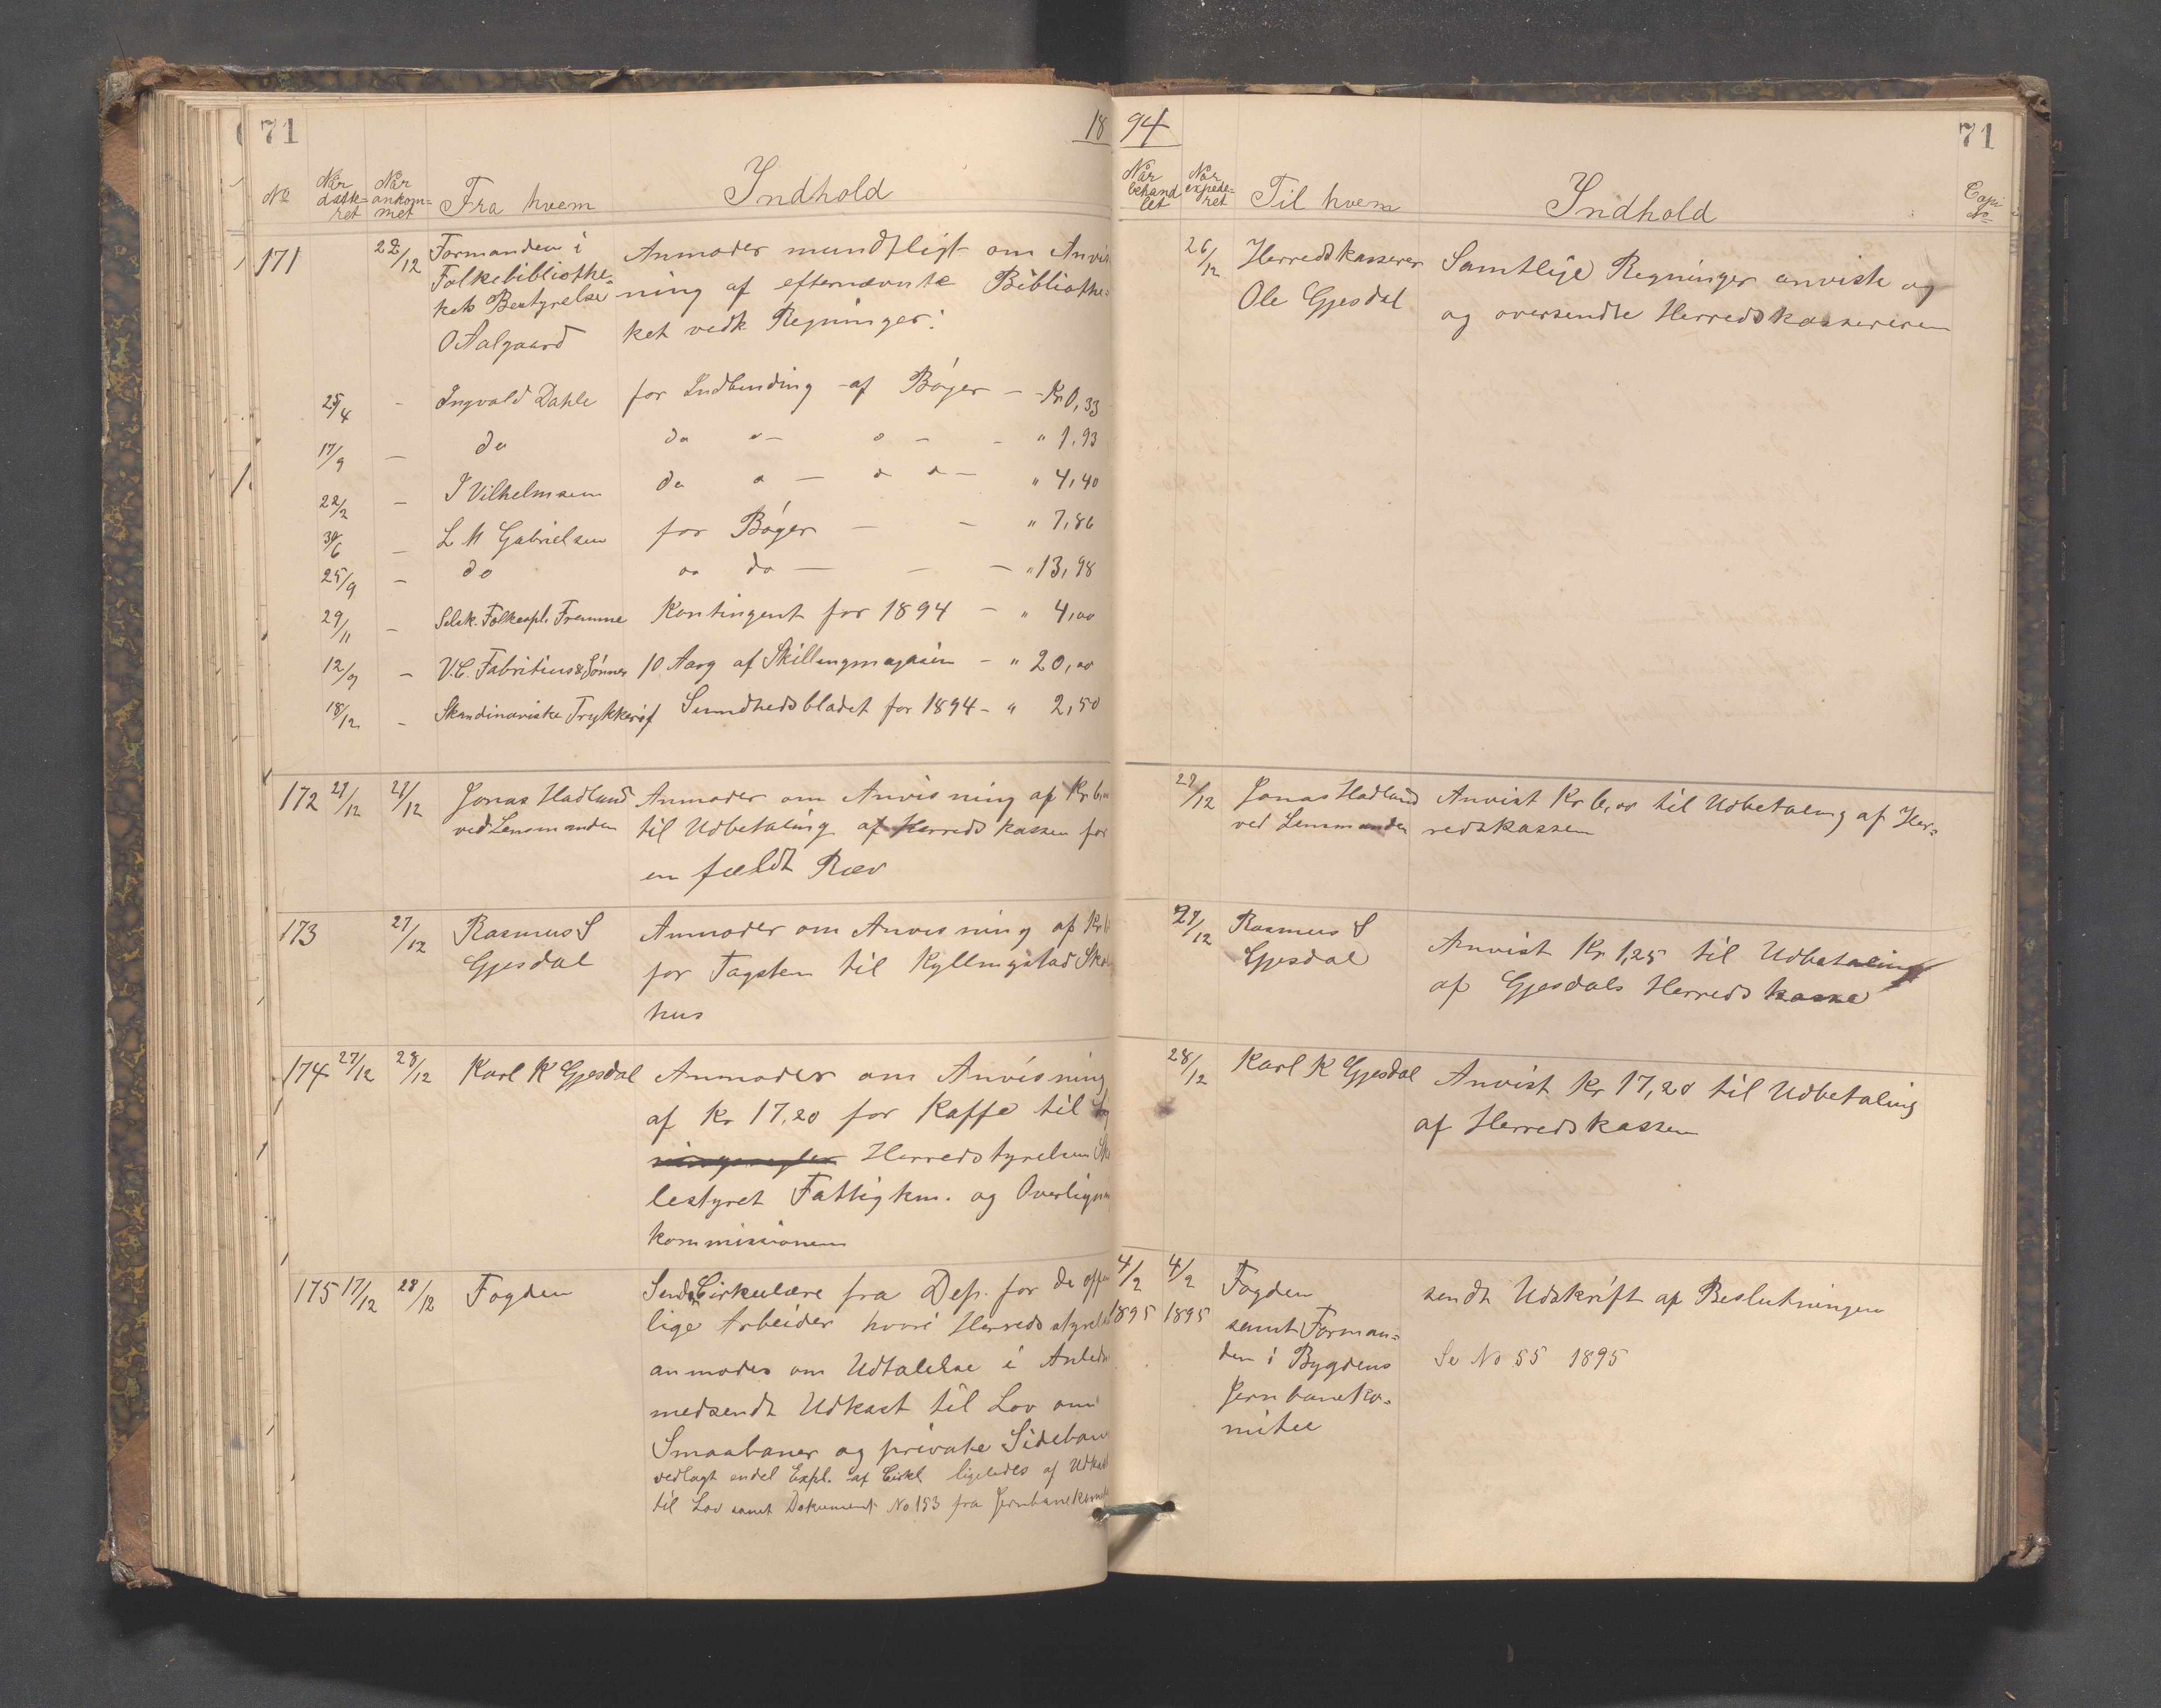 71
18
No
Når datte-ret
Når ankom=met
Fra hvem
Indhold
171
22/12
Formanden i
Folkebibliothe=
kets Bestyrelse
O Aalgaard
Anmoder mundtligt om Anvis
ning af efternævnte Bibliothe=
ket vedk Regninger:
25/4 - Ingvald Dahle for Indbinding af Bøger - - Kr 0,33
17/9 - do do " - " - - " 1,93
22/2 - I Vilhelmsen do " - " " - " 4,40
30/6 - L M Gabrielsen for Bøger - - " 7,86
25/9 - do " do - - - " 13,98
29/11 - Selsk. Folkeopl. Fremme Kontingent for 1894 - " 4,00
12/9 - V.C. Fabritius & Sønner 10 Aarg af Skillingmagasin - " 20,00
18/12 - Skandinaviske Trykkerif Sundhedsbladet for 1894 - " 2,50
172 27/12 27/12
Jonas Hadland
ved Lensmanden
Anmoder om Anvisning af Kr 6,00
til Udbetaling af Herredskassen for
en fældt Ræv
173 27/12
Rasmus S
Gjesdal
Anmoder om Anvisning af Kr
for Tagsten til Kyllingstad Skole
hus
174 27/12 28/12
Karl K Gjesdal
Anmoder om Anvisning
af Kr 17,20 for Kaffe til
Herredstyrelsen Sko
lestyret Fattigkm. og Overligni
kommissionen
175 17/12 28/12
Fogden
Sendt Cirkulære fra Dep. for de offe
lige Arbeider hvori Herredsstyrel
anmodes om Udtalelse i Anledn
medsendt Udkast til Lov om
Smaabaner og private Sideban
vedlagt endel Expl. af Cirkl ligeledes af Udkast
til Lov samt Dokument No 153 fra Jernbanekomit
94
71
Når behand let
Når expede=ret
Til hvem
Indhold
Copi No
26/12
Herredskasserer
Ole Gjesdal
Samtlije Regninger anviste og
og oversendte Herredskassereren
27/12
Jonas Hadland
ved Lensmanden
Anvist Kr 6,00 til Udbetaling af Her=
redskassen
27/12
Rasmus S
Gjesdal
Anvist Kr 1,25 til Udbetaling
af Gjesdals Herredskasse
28/12
Karl K Gjesdal
Anvist Kr 17,20 til Udbetaling
af Herredskassen
4/2 1895
4/2 1895
Fogden
samt Forman=
den i Bygdens
Jernbaneko=
mitee
sendt Udskrift af Beslutningen
Se No 55 1895